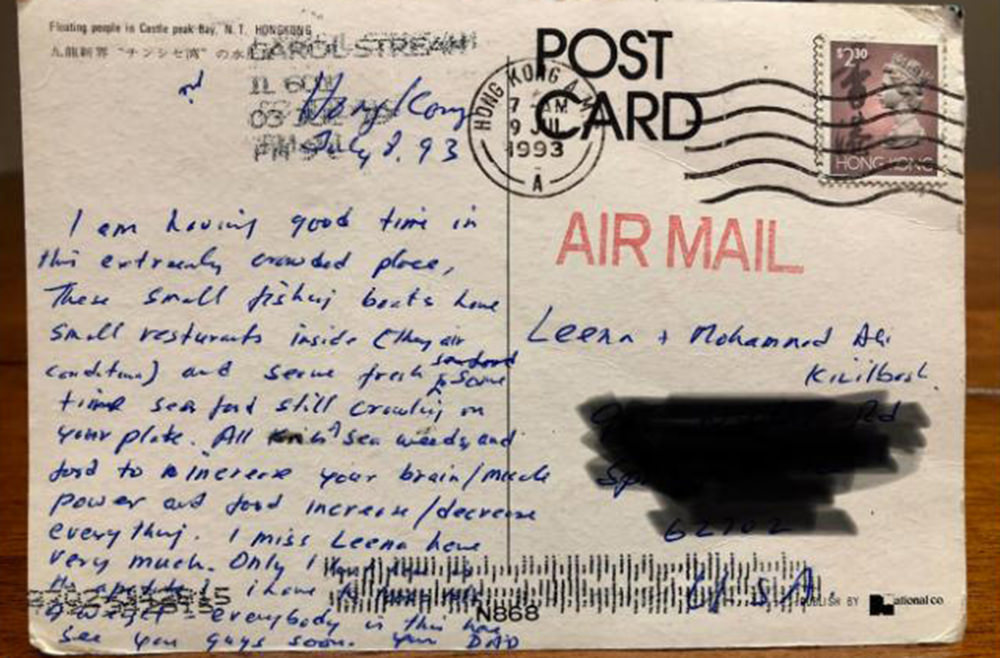 Floating people in Castle peak Bay, N. T. HONGKONG
九龍新界 "チンシセ湾" の水
CAROL STREAM
IL 601
03 JUL
PM
Hong Kong
July 8, 93
POST
CARD
HONG KONG A.M.C
7 AM
9 JUL
1993
A
$2.30
香港
HONG KONG
AIR MAIL
I am having good time in
this extremly crowded place,
These small fishing boats have
small resturants inside (They air
condition) and serve fresh seafood
& some
time sea food still crawling on
your plate. All kinds sea weeds, and
food to increase your brain/muscle
power and food increase/decrease
everything. I miss Leena here
very much. Only I
I have
everybody in this
See you guys soon. Your DAD
Leena + Mohammed Ali
Kizilbash.
Rd
Sp
62702
U.S.A.
N868
PUBLISH BY National co